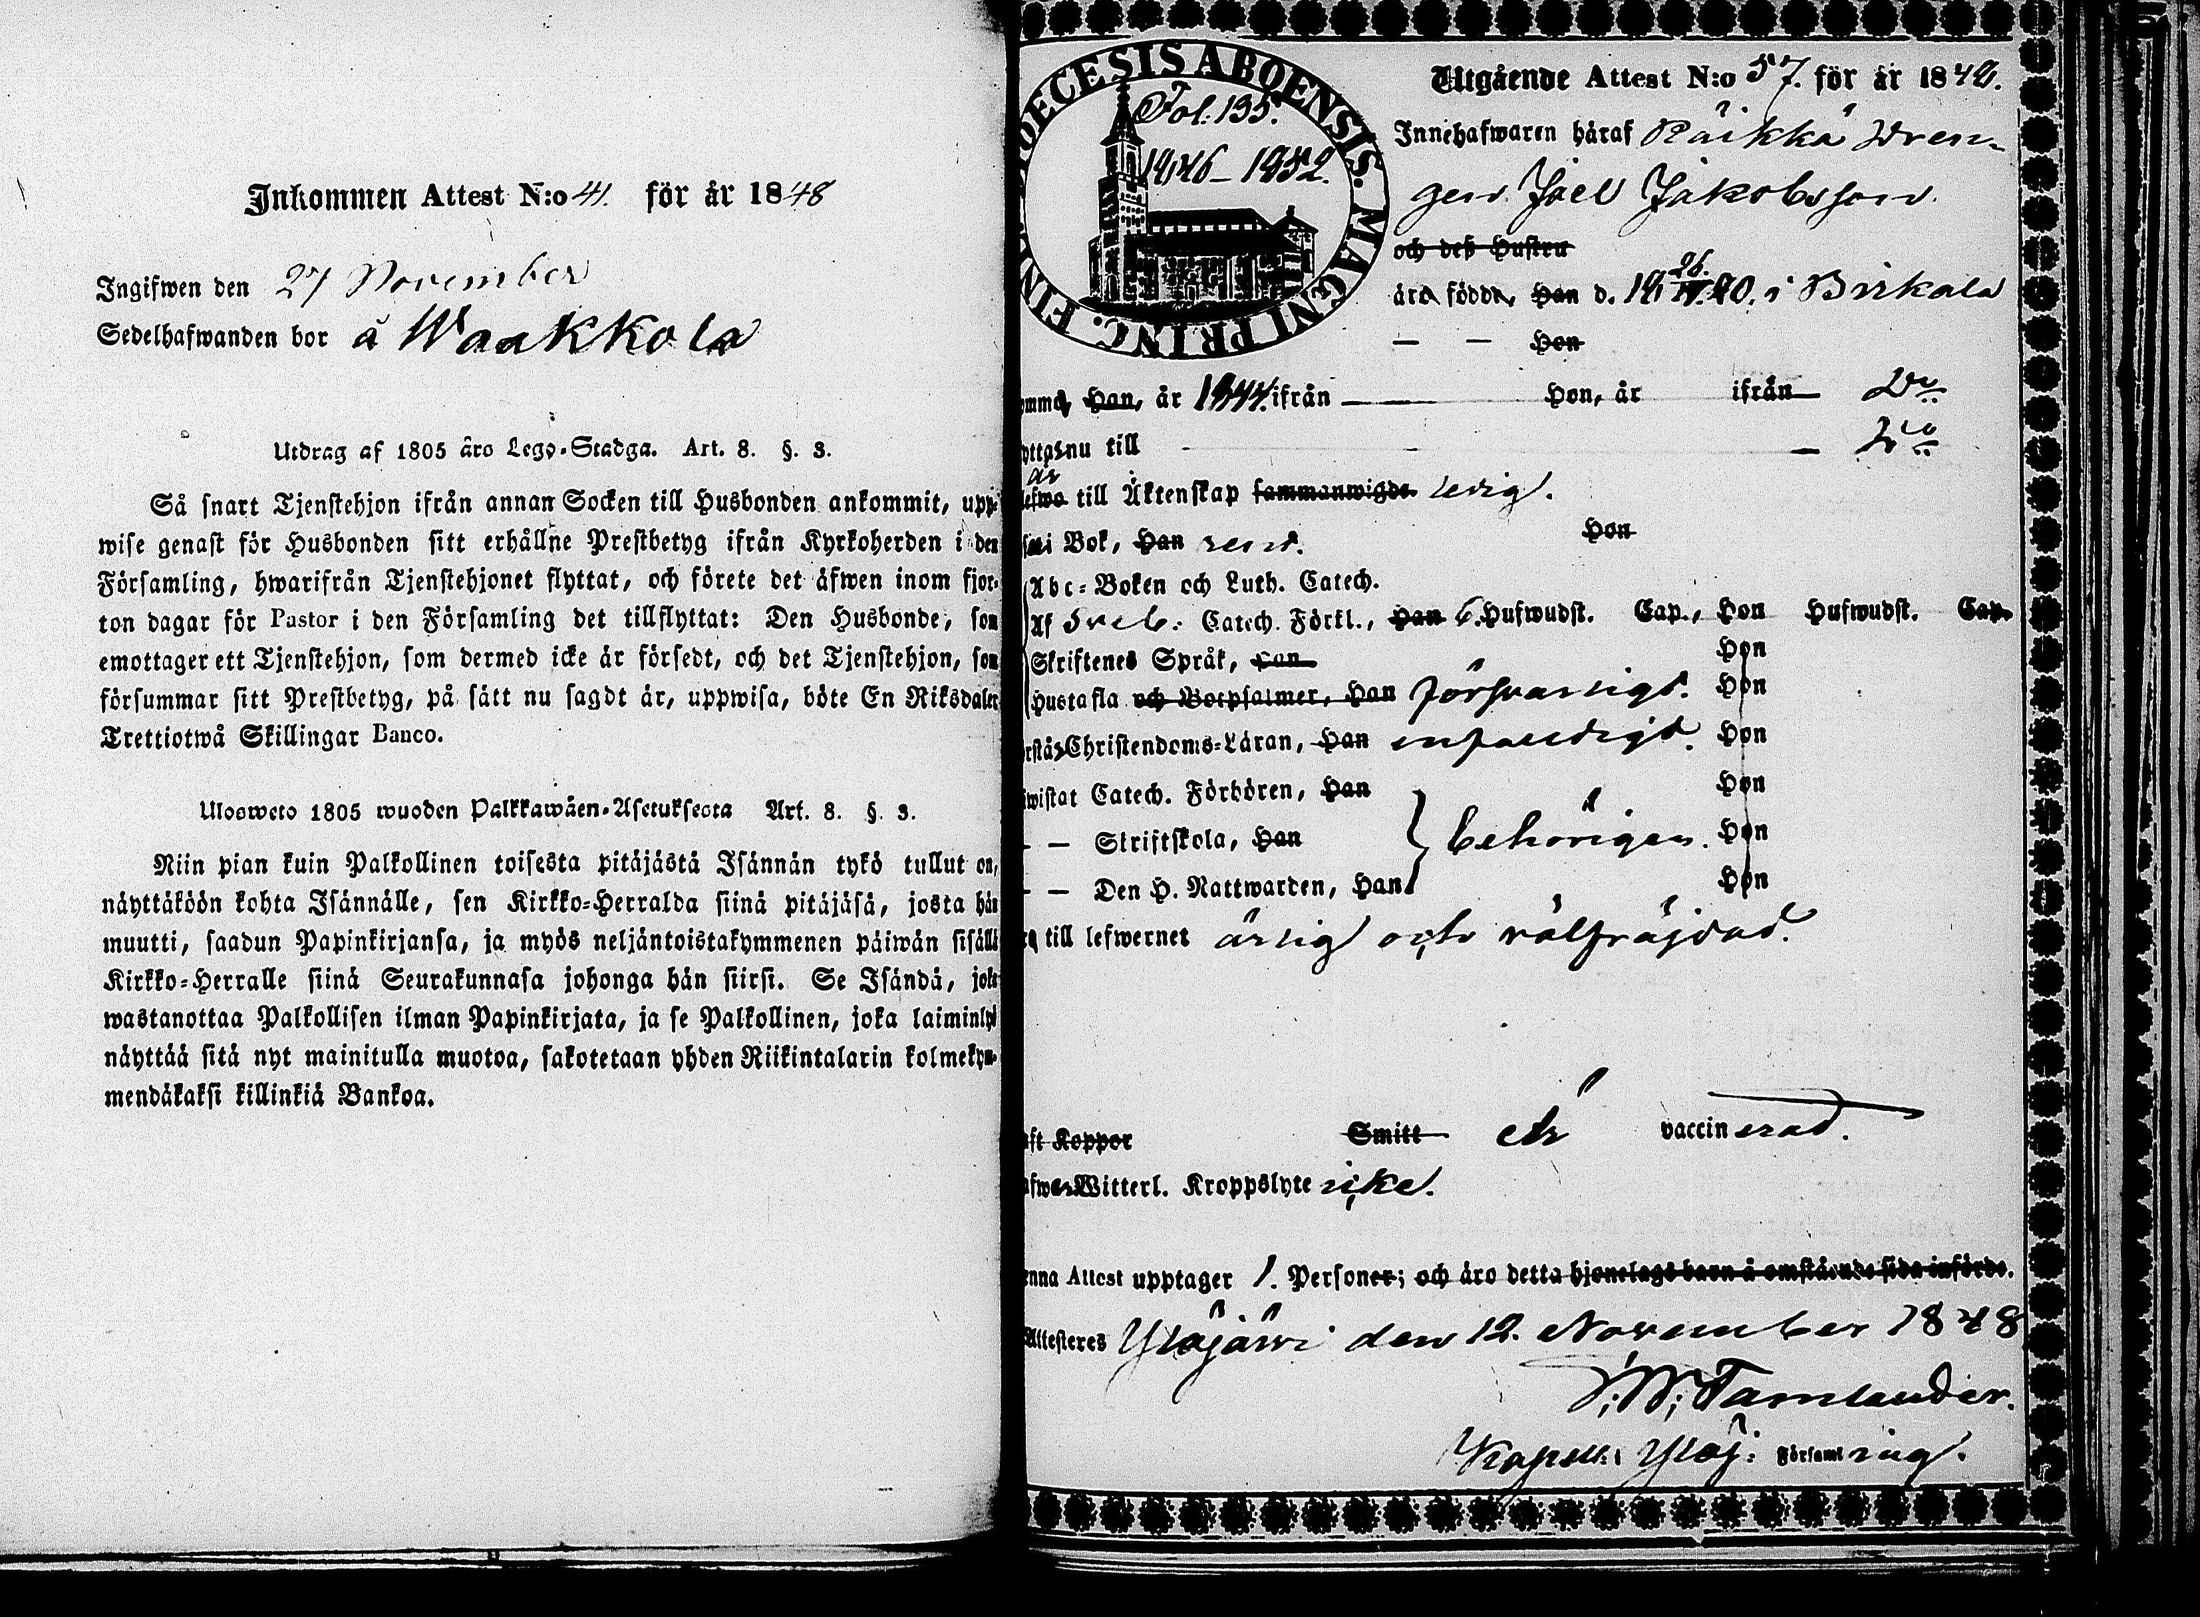 Inkommen Attest N:o 41. för år 1848
Ingifwen den 27 November
Sedelhafwanden bor å Waakkola
Utdrag af 1805 åro Lego-Stadga. Art. 8. §. 3.
Så snart Tjenstehjon ifrån annan Socken till Husbonden ankommit, upp-
wise genast för Husbonden sitt erhållne Prestbetyg ifrån Kyrkoherden i den
Församling, hwarifrån Tjenstehjonet flyttat, och förete det äfwen inom fjor-
ton dagar för Pastor i den Församling det tillflyttat: Den Husbonde, som
emottager ett Tjenstehjon, som dermed icke är försedt, och det Tjenstehjon, som
försummar sitt Prestbetyg, på sätt nu sagdt är, uppwisa, böte En Riksdaler
Trettiotwå Skillingar Banco.
Ulosweto 1805 wuoden Palkkawäen-Asetuksesta Art. 8. §. 3.
Niin pian kuin Palkollinen toisesta pitäjästä Isännän tykö tullut on,
näyttäköön kohta Isännälle, sen Kirkko-Herralda siinä pitäjäsä, josta hän
muutti, saadun Papinkirjansa, ja myös neljäntoistakymmenen päiwän sisällä
Kirkko-Herralle siinä Seurakunnasa johonga hän siirsi. Se Isändä, joka
wastanottaa Palkollisen ilman Papinkirjata, ja se Palkollinen, joka laiminlyö
näyttää sitä nyt mainitulla muotoa, sakotetaan yhden Riikintalarin kolmekym-
mendäkaksi killinkiä Bankoa.
DIOECESIS ABOENSIS. MAGNI PRINC. FIN
Fol: 135.
1846-1852.
Utgående Attest N:o 57. för år 1848.
Innehafwaren häraf Räikkä Dren-
gen Joel Jakobsson.
och deß Hustru
äro födde, Han d. 18 26/IV. 20. i Birkala
— — Hon
omma, Han, år 1844. ifrån — Hon, år ifrån — Do
yttar nu till — Do
är
lefwa till Äktenskap sammanwigde. ledig.
i Bok, Han rent. Hon
Abc-Boken och Luth. Catech.
Af Sveb. Catech. Förkl., Han 6. Hufwudst. Cap., Hon Hufwudst. Cap.
Skriftenes Språk, Han Hon
Hustafla och Botpsalmer, Han försvarligt. Hon
rstår Christendoms-Läran, Han enfaldigt. Hon
wistat Catech. Förhören, Han Hon
— — Skriftskola, Han behörigen. Hon
— — Den H. Nattwarden, Han Hon
till lefwernet ärlig och välfräjdad.
aft Koppor Smitt är vaccinerad.
afwa Witterl. Kroppslyte icke.
enna Attest upptager 1. Personer; och äro detta hjonelags barn å omstående sida införde.
Attesteres Ylöjärvi den 12. November 1848
Tamlander.
Kapell: Ylöj: Församling.